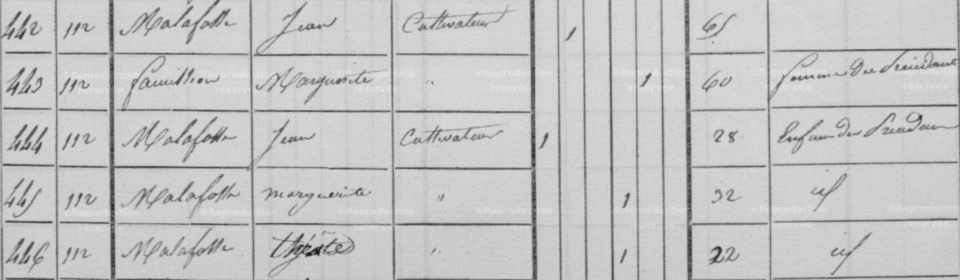 442 112 Malafosse Jean Cultivateur 1 65
443 112 Marguerite " 1 60 femme du Précédent
444 112 Malafosse Jean Cultivateur 1 28 Enfant du Précédent
445 112 Malafosse marguerite " 1 32 id
446 112 Malafosse " 1 22 id